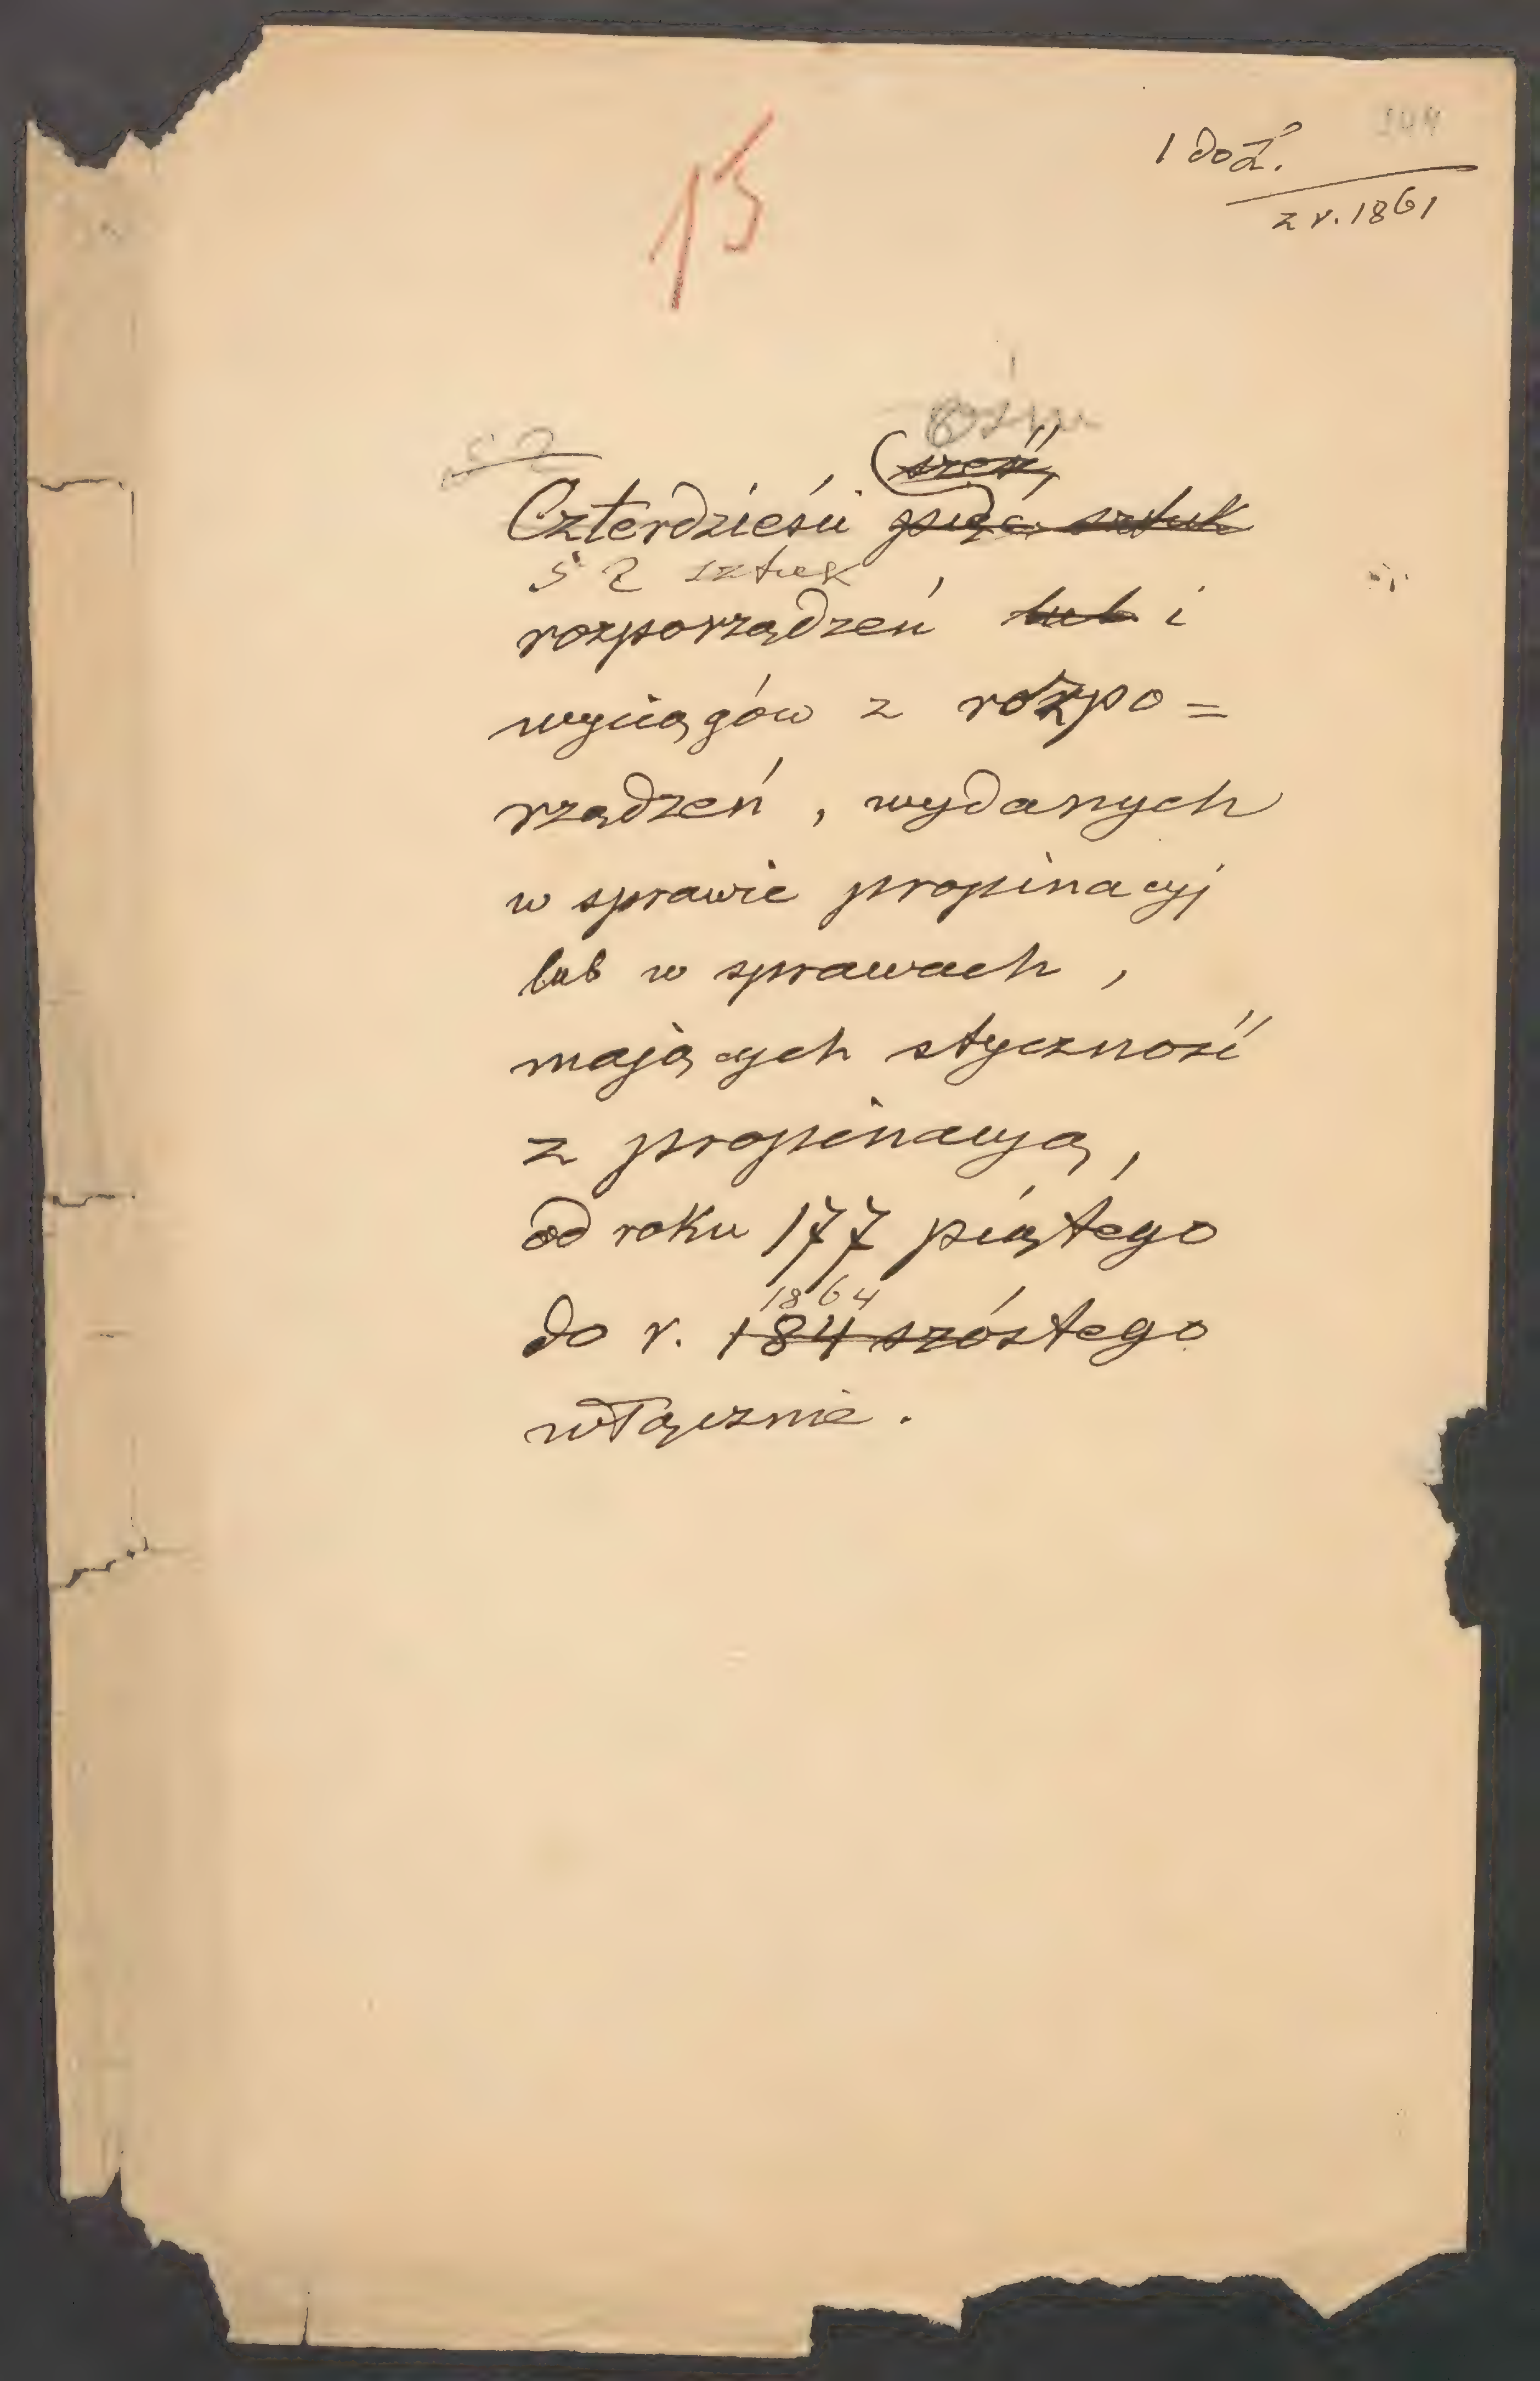 15
z r. 1861
52
sześć
Czterdzieści pięć sztuk
52 sztuk
rozporządzeń lub i
wyciągów z rozpo=
rządzeń, wydanych
w sprawie propinacyj
lub w sprawach,
mających styczność
z propinacyą,
od roku 177 piątego
1864
do r. 184 szóstego
włącznie.